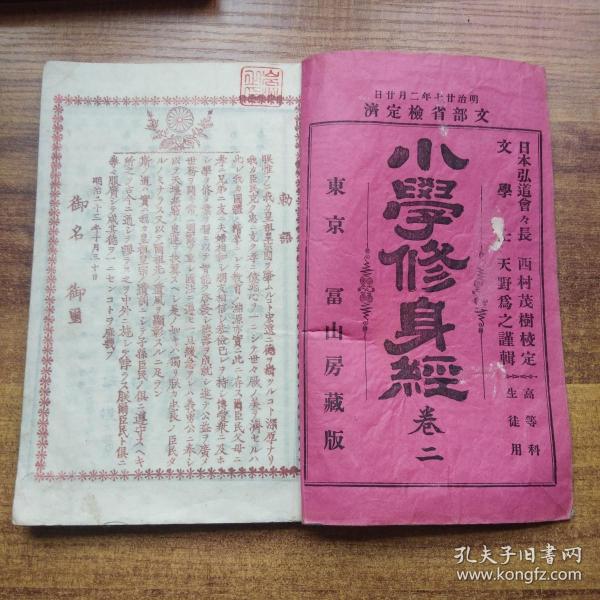 明治廿七年二月廿日
文部省檢定濟
日本弘道會々長 西村茂樹校定
文學士 天野爲之謹輯
高等科
生徒用
小學修身經 巻二
東京 冨山房藏版
勅語
朕惟フニ我カ皇祖皇宗國ヲ肇ムルコト宏遠ニ德ヲ樹ツルコト深厚ナリ
我カ臣民克ク忠ニ克ク孝ニ億兆心ヲ一ニシテ世々厥ノ美ヲ濟セルハ
此レ我カ國體ノ精華ニシテ教育ノ淵源亦實ニ此ニ存ス爾臣民父母ニ
孝ニ兄弟ニ友ニ夫婦相和シ朋友相信シ恭儉己レヲ持シ博愛衆ニ及ホ
シ學ヲ修メ業ヲ習ヒ以テ智能ヲ啓發シ德器ヲ成就シ進テ公益ヲ廣メ
世務ヲ開キ常ニ國憲ヲ重シ國法ニ遵ヒ一旦緩急アレハ義勇公ニ奉シ
以テ天壤無窮ノ皇運ヲ扶翼スヘシ是ノ如キハ獨リ朕カ忠良ノ臣民タ
ルノミナラス又以テ爾祖先ノ遺風ヲ顯彰スルニ足ラン
斯ノ道ハ實ニ我カ皇祖皇宗ノ遺訓ニシテ子孫臣民ノ俱ニ遵守スヘキ
所之ヲ古今ニ通シテ謬ラス之ヲ中外ニ施シテ悖ラス朕爾臣民ト俱ニ
拳々服膺シテ咸其德ヲ一ニセンコトヲ庶幾フ
明治二十三年十月三十日
御名 御璽
孔夫子旧书网
www.kongfz.com